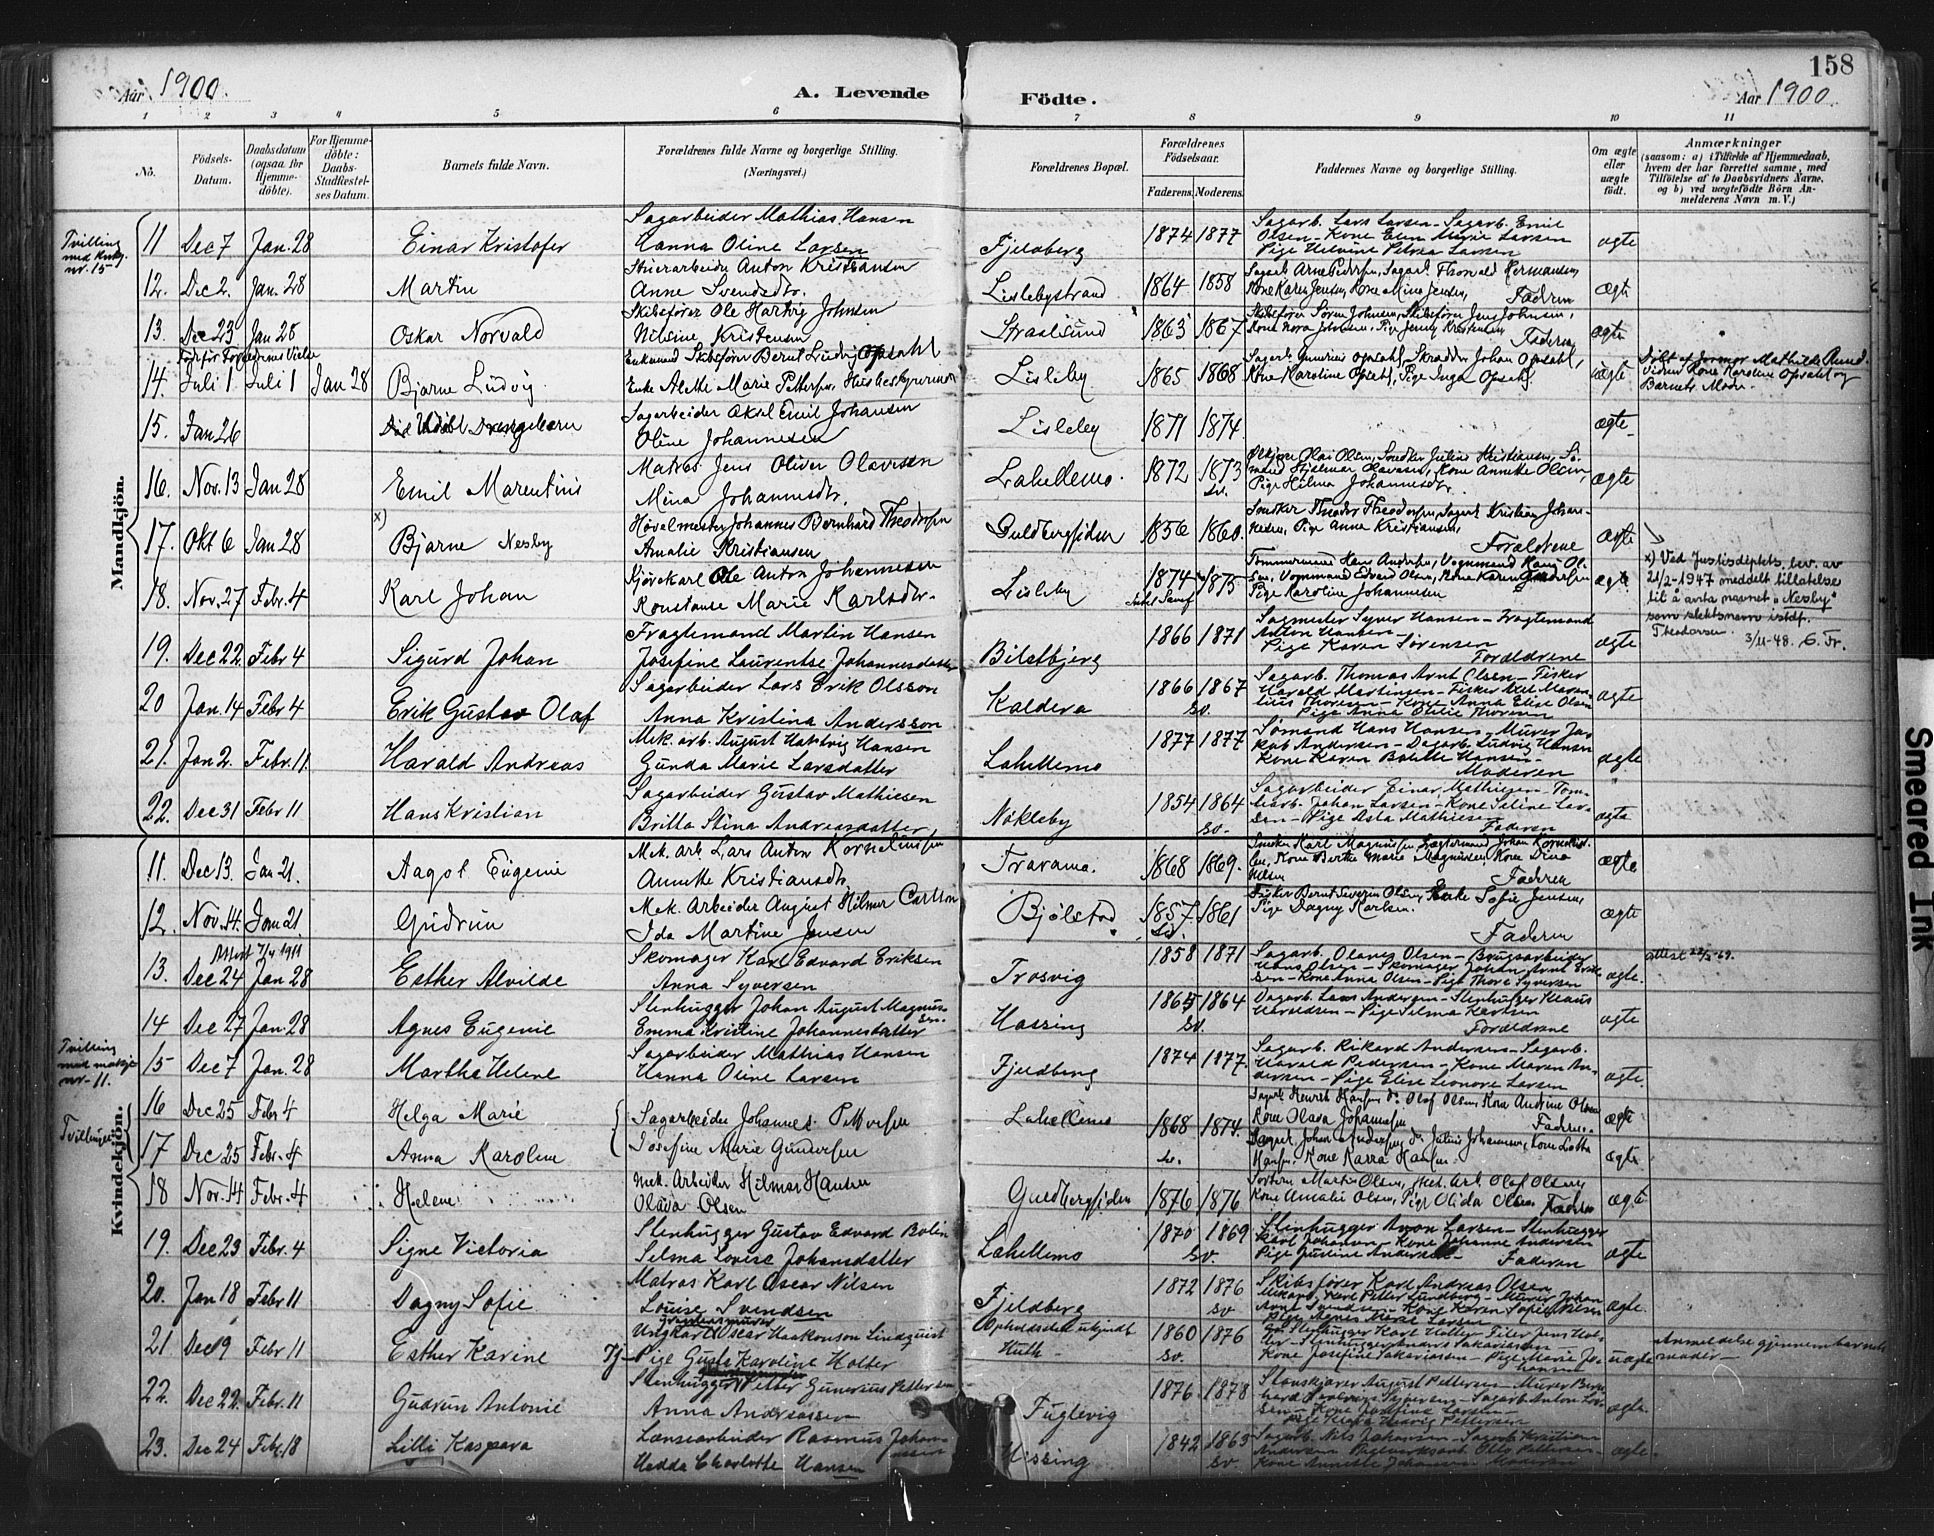 158
Aar 1900.
A. Levende Födte.
Aar 1900.
1 2 3 4 5 6 7 8 9 10 11
No.
Födsels-Datum.
Daabsdatum (ogsaa for Hjemme-döbte).
For Hjemme-döbte: Daabs-Stadfæstel-ses Datum.
Barnets fulde Navn.
Forældrenes fulde Navne og borgerlige Stilling. (Næringsvei.)
Forældrenes Bopæl.
Forældrenes Födselsaar.
Faderens. Moderens.
Faddernes Navne og borgerlige Stilling.
Om ægte eller uægte födt.
Anmærkninger
(saasom: a) i Tilfælde af Hjemmedaab, hvem der har forrettet samme, med Tilföielse af to Daabsvidners Navne, og b) ved uægtefödte Börn An-melderens Navn m. V.)
Mandkjön.
Tvilling med kvkj. nr. 15
11 Dec 7 Jan. 28 Einar Kristofer
Sagarbeider Mathias Hansen
Hanna Oline Larsen
Fjeldberg 1874 1877
Sagarb. Lars Larsen - Sagarb. Emil
Olsen - Kone Elen Marie Larsen
Pige Helvine Petrea Larsen
ægte
12. Dec 2. Jan. 28 Martin
Anton Kristiansen
Anne Svendsdtr.
Lislebystrand 1864 1858
Kone Karen Jensen, Kone Mina Jensen, Faderen
ægte
13. Dec 23 Jan 28 Oskar Norvald
Skibsfører Ole Hartvig Johnsen
Nilsine Kristensen
Straalsund 1863 1867
Skibsfører Søren Johnsen, Skibsfører Jens Johnsen,
Kone Nora Johnsen, Pige Jenny Kristensen
Faderen
ægte
14. Juli 1. Juli 1 Jan 28 Bjarne Ludvig
Enkemand Skibsfører Bernt Ludvig Opsahl
Enke Alette Marie Pettersen,
Lisleby 1865 1868
Sagarb. Gunerius Opsahl, Skrædder Johan Opsahl,
Kone Karoline Opsahl, Pige Inga Opsahl.
Döbt af Jormor Mathilde Rund.
Vidner Kone Karoline Opsahl og
Barnets Moder.
15. Jan 26 Udöbt Drengebarn
Sagarbeider Aksel Emil Johansen
Oline Johannesen
Lisleby 1871 1874
ægte
16. Nov. 13 Jan 28 Emil Marentius
Matros Jens Oliver Olavesen
Mina Johannesdtr.
Lahellemo. 1872 1873 sv.
Hjalmar Olavesen, Kone Annette Olsen,
Pige Hilma Johannesdtr.
ægte
x)
17. Okt 6 Jan 28 Bjarne Nesby
Høvelmester Johannes Bernhard Theodorsen
Amalie Kristiansen
Guldbergsiden 1856 1860.
Smeker Theodor Theodorsen, Sagarb. Kristian Johan-
nesen, Pige Anne Kristiansen,
Forældrene
ægte
x) Ved Justisdeptets. bev. av
21/2-1947 meddelt tillatelse
til å anta navnet "Nesby"
som slektsnavn istdf.
Theodorsen. 3/11-48. G. Fr.
18. Nov. 27 Febr. 4 Karl Johan
Kjørekarl Ole Anton Johannesen
Konstanse Marie Karlsdtr.
Lisleby 1874 1875
Tømmermand Hans Andersen, Vognmand Hans Ol-
sen, Vognmand Edvard Olsen, Kone Karen
Pige Karoline Johannesen
ægte
19. Dec 22. Febr 4 Sigurd Johan
Fragtemand Martin Hansen
Josefine Laurentse Johannesdatter
Biletbjerg 1866 1871
Sagmester Syver Hansen - Fragtemand
Anton Hansen -
Pige Karen Sørensen
Forældrene
ægte
20 Jan. 14 Febr 4 Erik Gustav Olaf
Sagarbeider Lars Erik Olsson
Anna Kristina Andersson
Kaldera 1866 1867 sv.
Sagarb. Thomas Arnt Olsen - Fisker
Harald Martinsen - Fisker Axel Maren-
lius Thoresen - Kone Anna Elise Olsen
Pige Anna Otilie Thoresen
ægte
21. Jan 2. Febr. 11 Harald Andreas
Mek. arb. August Hartvig Hansen
Gunda Marie Larsdatter
Lahellemo 1877 1877
Sømand Hans Hansen - Murer Jac-
kob Andersen - Dagarb. Ludvig Hansen
Kone Karen Bolette Hansen -
Moderen
ægte
22. Dec 31 Febr 11 Hans Kristian
Sagarbeider Gustav Mathiesen
Britta Stina Andreasdatter,
Nøkleby 1854 1864 sv.
Sagarbeider Einar Mathiesen - Tøm-
merb. Johan Larsen - Kone Seline Lar-
sen - Pige Asta Mathiesen
Faderen
ægte
Kvindekjön.
11. Dec 13. Jan 21. Aagot Eugenie
Mek. Arb. Lars Anton Korneliussen
Annette Kristiansdtr.
Trarama. 1868 1869.
Kone Berthe Marie Magnussen, Kone Dina
Nilsen Faderen
ægte
12. Nov. 14. Jan 21 Gudrun
Mek. Arbeider August Hilmer Carlson
Ida Martine Jensen
Bjølstad 1857. sv. 1861
Fisker Bernt Severin Olsen, Enke Sofie Jensen,
Pige Dagny Karlsen.
Faderen
ægte
13. Dec 24 Jan 28 Esther Alvilde
Skomager Karl Edvard Eriksen
Anna Syversen
Trosvig 1858 1871
Sagarb. Olave Olsen - Brugsarbeider
Hans Olsen - Skomager Johan Arnt Erik-
sen - Kone Anna Olsen - Pige Thora Syversen
ægte.
14 Dec 27 Jan. 28 Agnes Eugenie
Stenhugger Johan August Magnus-
sen.
Emma Kristine Johannesdatter
Hassing 1865 1864 sv.
Dagarb. Lars Andersen - Stenhugger Klaus
Haraldsen - Pige Selma Karlsen
Forældrene
ægte
Tvilling med mandkj. nr. 11.
15 Dec 7 Jan. 28 Martha Helene
Sagarbeider Mathias Hansen
Hanna Oline Larsen
Fjeldberg 1874 1877.
Sagarb. Rikard Andersen - Sagarb.
Harald Pedersen - Kone Maren An-
dersen - Pige Elise Leonore Larsen
ægte.
Tvillinger
16 Dec 25 Febr 4 Helga Marie
Sagarbeider Johannes Pettersen
Josefine Marie Gundersen
Lahellemo 1868 sv. 1874.
Olaf Olsen, Kone Andrine Olsen
Kone Olava Johannesen Faderen.
ægte
17 Dec 25 Febr. 4 Anna Karoline
Johan Andersen, do Julius Johannesen, Kone Lotta
Hansen. Kone Karra Hansen.
ægte
18 Nov. 14 Febr. 4 Helene
Mek. Arbeider Hilmar Hansen
Olava Olsen
Guldbergsiden 1876 1876
Martin Olsen, Mek. Arb. Olaf Olsen,
Kone Amalie Olsen, Pige Olida Olsen Faderen
ægte
19. Dec 23 Febr. 4 Signe Victoria
Stenhugger Gustav Edvard Bolin
Selma Lovise Johansdatter
Lahellemo 1870 1869 sv.
Stenhugger Aron Larsen - Stenhugger
Karl Johansen - Kone Johanne Andersen
Pige Justine Andersen - Faderen
ægte
20. Jan 18 Febr 11 Dagny Sofie
Matros Karl Oscar Nilsen
Louise Svendsen
Fjeldberg 1872 1876 sv
Skibsfører Karl Andreas Olsen
Karl Petter Lundberg - Murer Johan
Arnt Svendsen - Kone Karen Sofie Nilsen
Pige Agnes Marie Larsen
ægte.
21 Dec 9 Febr 11 Esther Karine
Ungkarl Oscar Haakonson Lindquist
Pige Gusta Karoline Holter
Opholdsted ukjendt
Huth 1860 sv. 1876
Stenhugger Karl Holter - Filer Jens Hol-
ter - Stenhugger Anders Sakariasen -
Kone Josefine Sakariasen - Pige Marie Jo-
hansen
uægte
Anmeldelse gjennem barnets
moder -
22. Dec 22. Febr. 11 Gudrun Antonie
Stenhugger Petter Gunerius Pettersen
Anna Andreassen
Fuglevig 1876. 1878
Stenskjærer August Pettersen - Murer Bern-
hard - Sagarb. Anton Lar-
sen - Kone Josefine Larsen -
Pige Klara Hedvig Pettersen
ægte.
23. Dec 24 Febr 18 Lilli Kaspara
Lænsearbeider Rasmus Johan-
nesen
Hedda Charlotte Hansen
Hissing 1842 1863 sv.
Sagarb. Nils Johansen - Sagarb. Kristian
Andersen - Otto Pettersen -
Kone Annette Johansen Moderen
ægte.
Smeared Ink